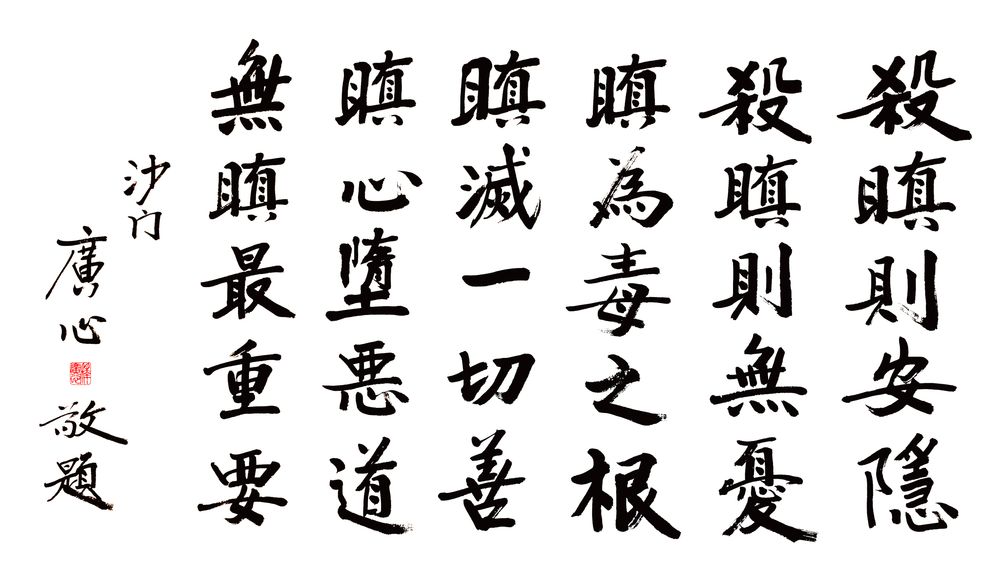 殺瞋則安隱
殺瞋則無憂
瞋為毒之根
瞋滅一切善
瞋心墮惡道
無瞋最重要
沙门
廣心
敬題